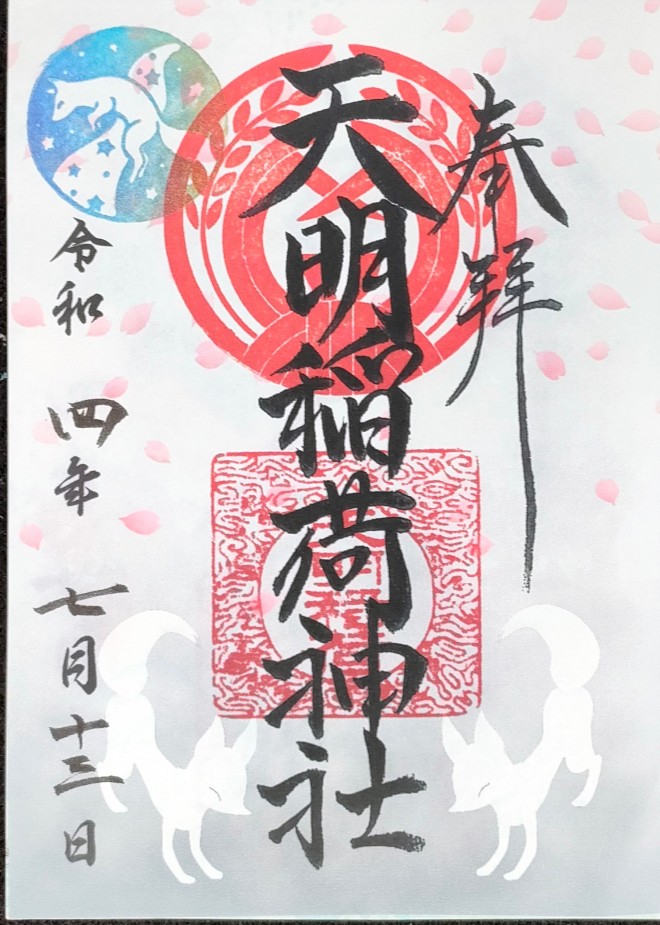 奉拝
天明稲荷神社
令和四年七月十三日